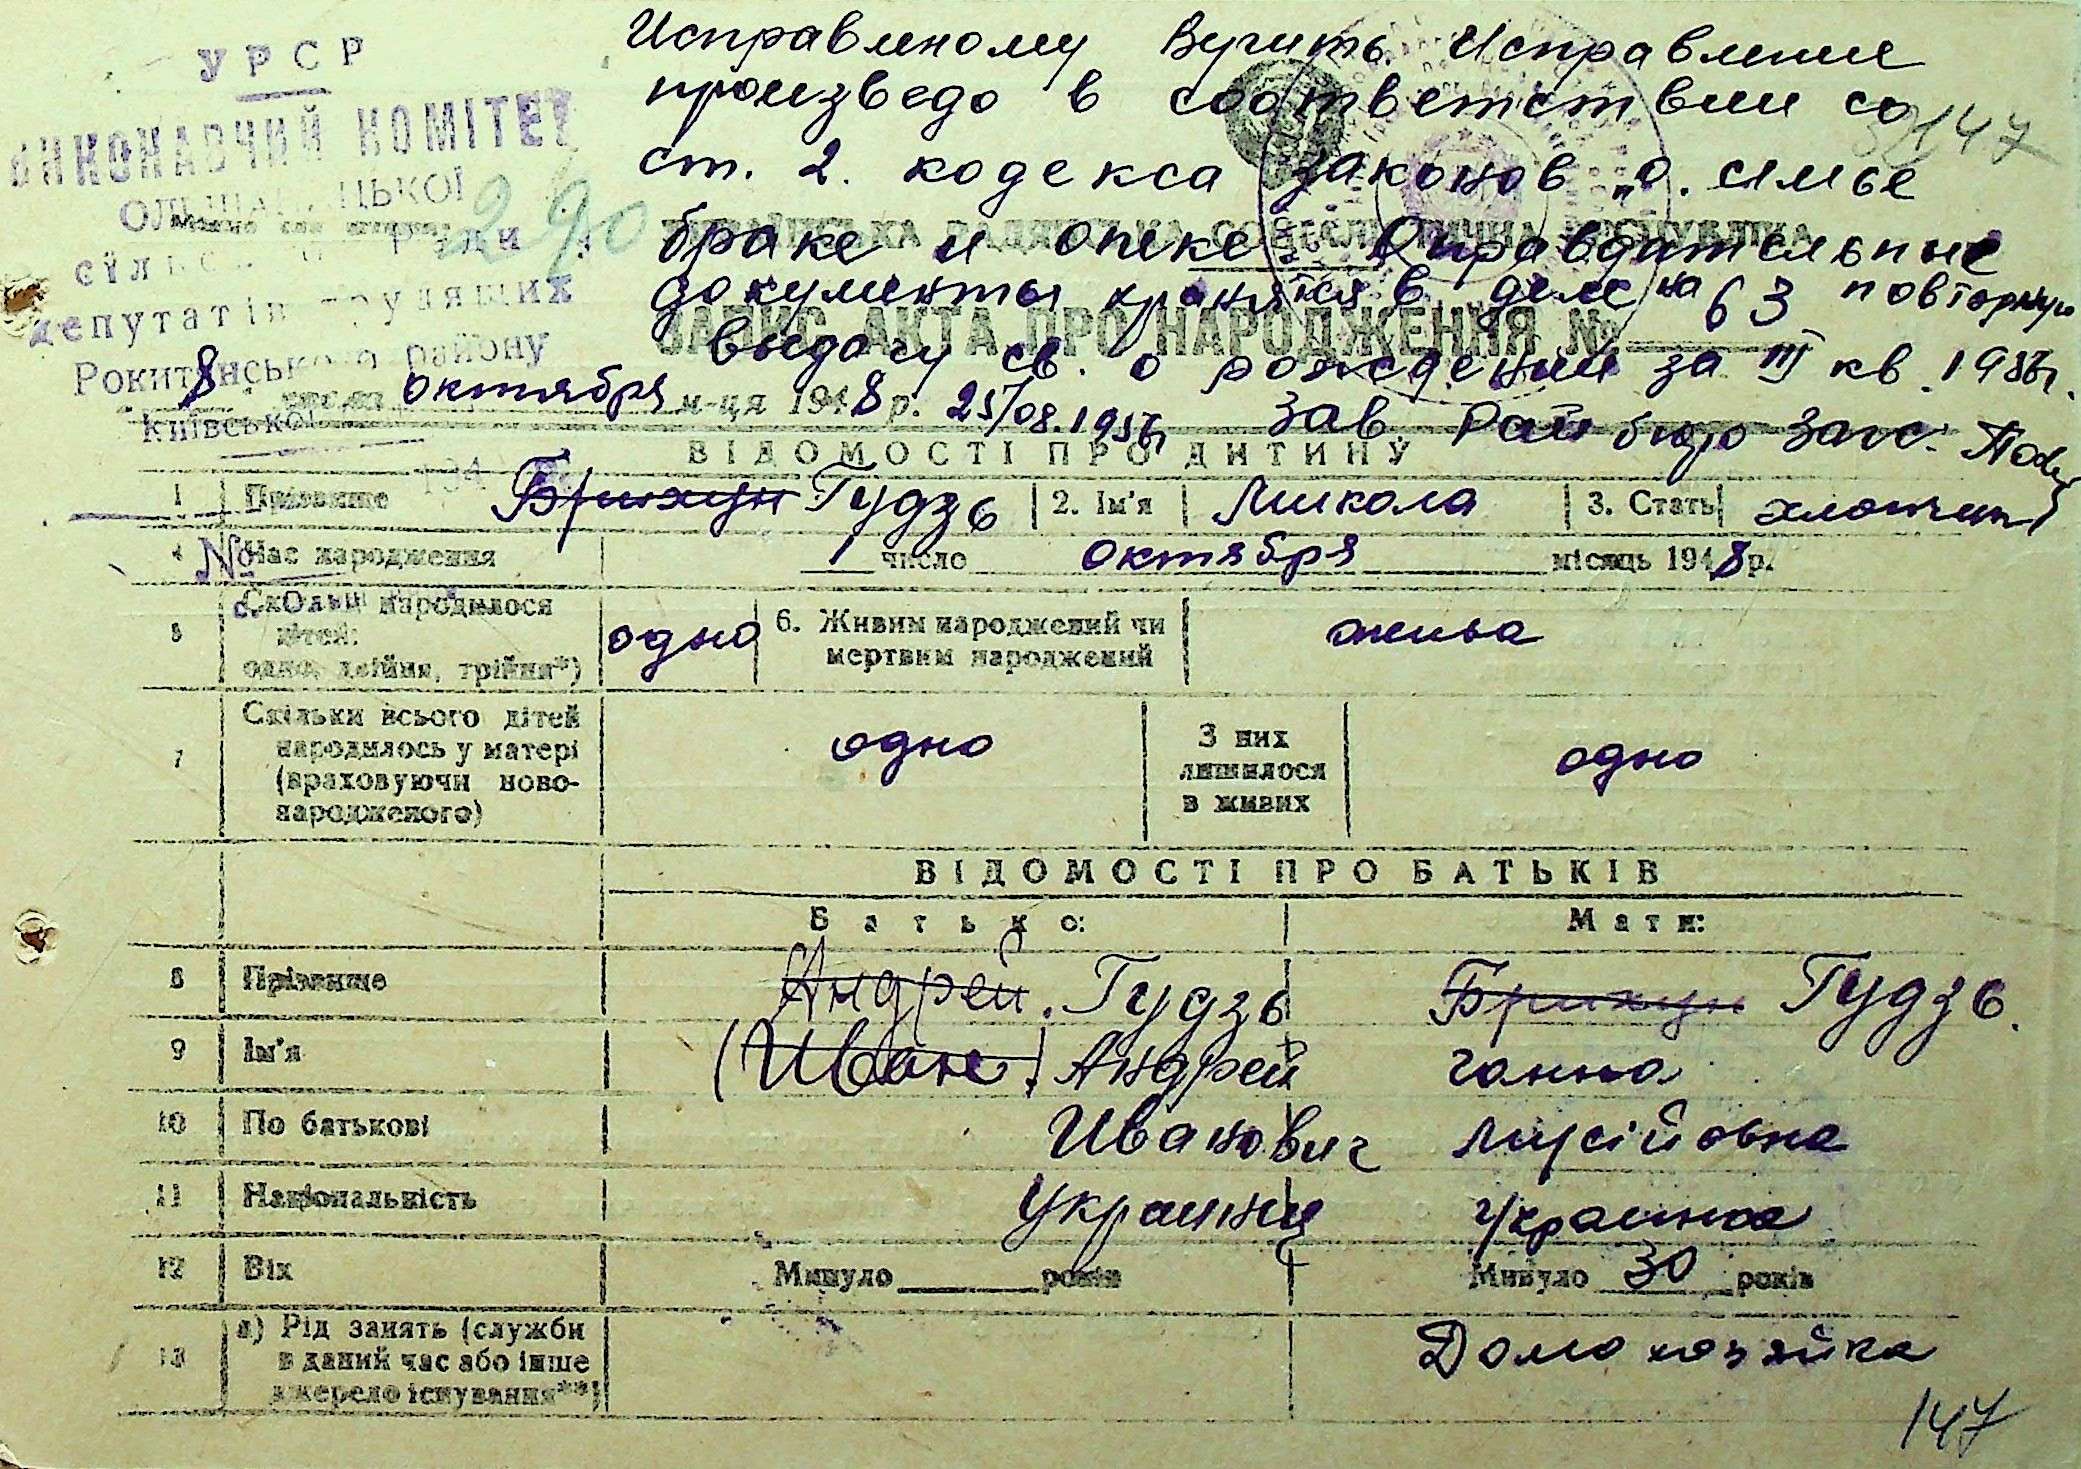 УРСР
ВИКОНАВЧИЙ КОМІТЕТ
депутатів трудящих
району
Київської
290
147
Исправленому Вучить. Исправление
произведо в соответствии со
ст. 2. кодекса законов "о. семье
браке и опеке Оправдательные
документы хранятся в деле на 63 повторную
выдачу св. о рождении за III кв. 1956г.
25/08.1956г Зав Рай бюро Загс.
УКРАЇНСЬКА РАДЯНСЬКА СОЦІАЛІСТИЧНА РЕСПУБЛІКА
ЗАПИС АКТА ПРО НАРОДЖЕННЯ №
8 числа октября м-ця 1948 р.
ВІДОМОСТІ ПРО ДИТИНУ
1 Прізвище Брижун Гудзь 2. Ім'я Микола 3. Стать хлопчик
4 Час народження 1 число октября місяць 1948 р.
5 Скільки народилося дітей: одно, двійня, трійня*) одно 6. Живим народжений чи мертвим народжений
7 Скільки всього дітей народилось у матері (враховуючи ново-народженого) одно З них лишилося в живих одно
ВІДОМОСТІ ПРО БАТЬКІВ
Батько: Мати:
8 Прізвище Андрей. Гудзь Брижун Гудзь.
9 Ім'я (Иван) Андрей Ганна
10 По батькові Иванович Мусійовна
11 Національність Украинец Украинка
12 Вік Минуло ____ років Минуло 30 років
13 а) Рід занять (служби в даний час або інше джерело існування**) Домохозяйка
147